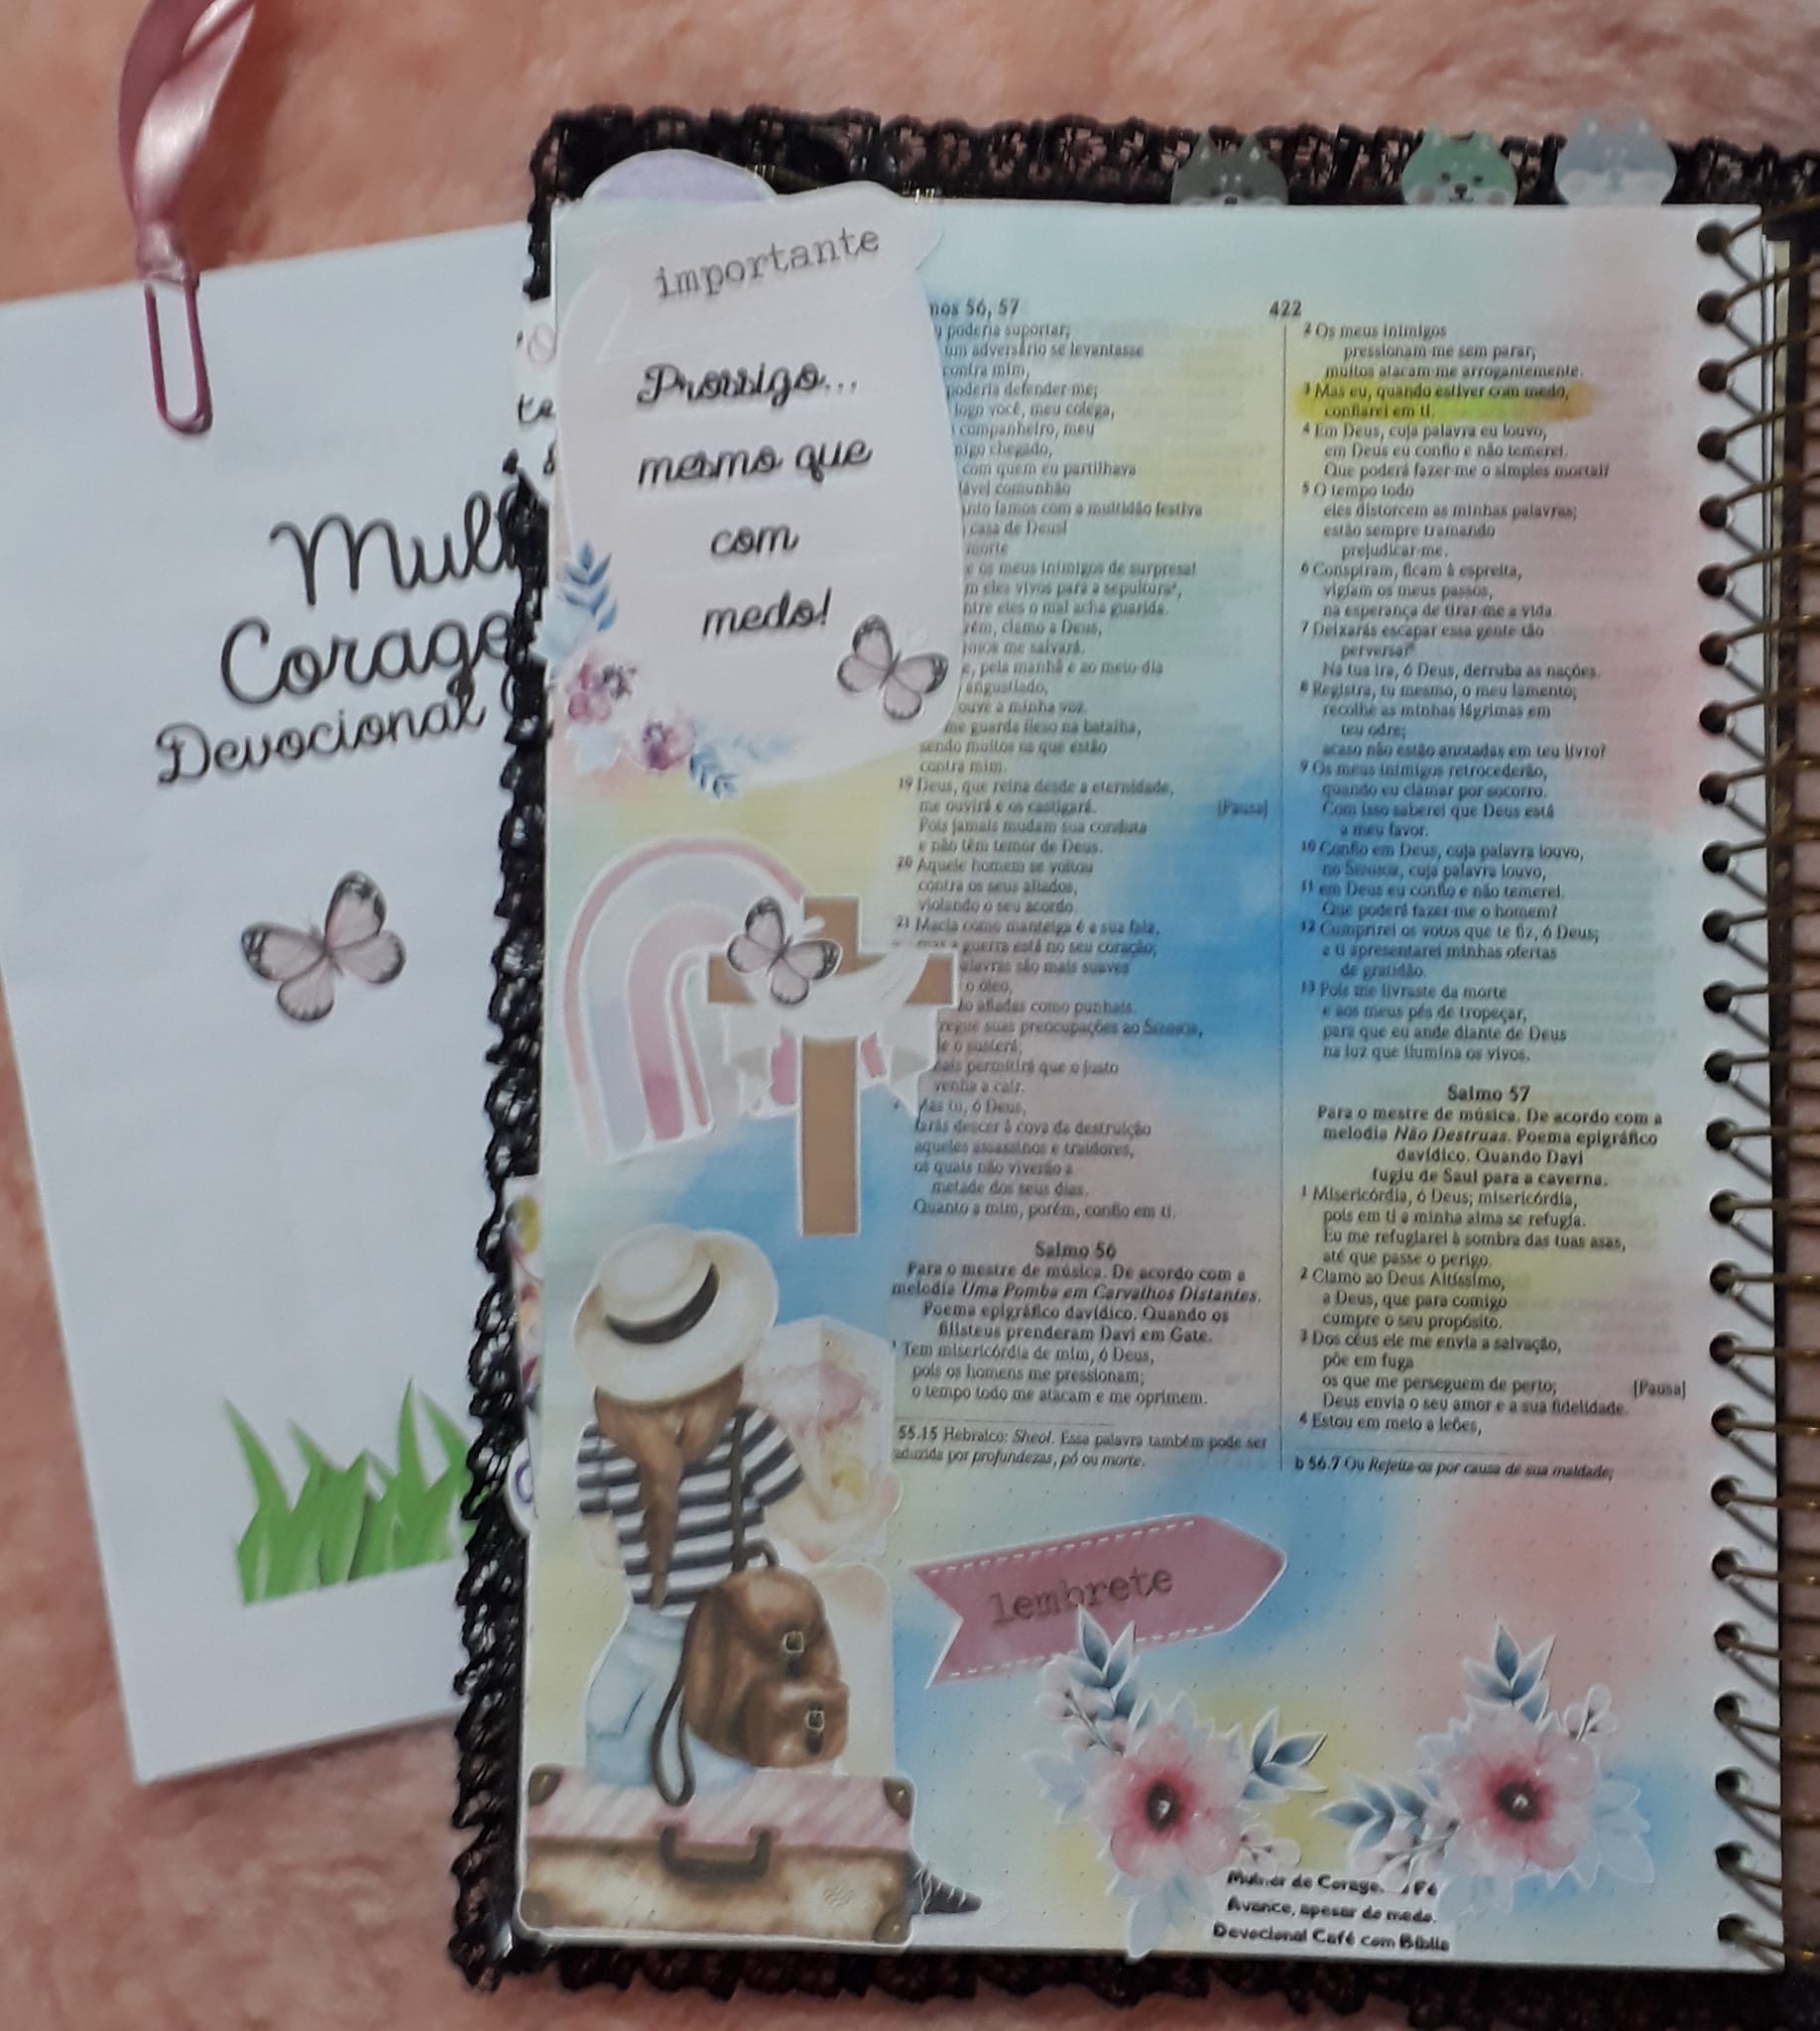 Corage
Devocional
importante
Prossigo...
mesmo que
com
medo!
56, 57
422
poderia suportar;
um adversário se levantasse
contra mim,
poderia defender-me;
logo você, meu colega,
companheiro, meu
chegado,
com quem eu partilhava
comunhão
famos com a multidão festiva
casa de Deus!
morte
e os meus inimigos de surpresa!
eles vivos para a sepultura,
eles o mal acha guarida.
clamo a Deus,
me salvará.
pela manhã e ao meio-dia
angustiado,
ouve a minha voz.
me guarda ileso na batalha,
sendo muitos os que estão
contra mim.
19 Deus, que reina desde a eternidade,
me ouvirá e os castigará. [Pausa]
Pois jamais mudam sua conduta
e não têm temor de Deus.
20 Aquele homem se voltou
contra os seus aliados,
violando o seu acordo.
21 Macia como manteiga é a sua fala,
mas a guerra está no seu coração;
são mais suaves
o óleo,
afiadas como punhais.
suas preocupações ao Senhor,
o susterá;
permitirá que o justo
venha a cair.
tu, ó Deus,
farás descer à cova da destruição
aqueles assassinos e traidores,
os quais não viverão a
metade dos seus dias.
Quanto a mim, porém, confio em ti.
Salmo 56
Para o mestre de música. De acordo com a
melodia Uma Pomba em Carvalhos Distantes.
Poema epigráfico davídico. Quando os
filisteus prenderam Davi em Gate.
1 Tem misericórdia de mim, ó Deus,
pois os homens me pressionam;
o tempo todo me atacam e me oprimem.
55.15 Hebraico: Sheol. Essa palavra também pode ser
por profundezas, pó ou morte.
2 Os meus inimigos
pressionam-me sem parar;
muitos atacam-me arrogantemente.
3 Mas eu, quando estiver com medo,
confiarei em ti.
4 Em Deus, cuja palavra eu louvo,
em Deus eu confio e não temerei.
Que poderá fazer-me o simples mortal?
5 O tempo todo
eles distorcem as minhas palavras;
estão sempre tramando
prejudicar-me.
6 Conspiram, ficam à espreita,
vigiam os meus passos,
na esperança de tirar-me a vida.
7 Deixarás escapar essa gente tão
perversa?
Na tua ira, ó Deus, derruba as nações.
8 Registra, tu mesmo, o meu lamento;
recolhe as minhas lágrimas em
teu odre;
acaso não estão anotadas em teu livro?
9 Os meus inimigos retrocederão,
quando eu clamar por socorro.
Com isso saberei que Deus está
a meu favor.
10 Confio em Deus, cuja palavra louvo,
no Senhor, cuja palavra louvo,
11 em Deus eu confio e não temerei.
Que poderá fazer-me o homem?
12 Cumprirei os votos que te fiz, ó Deus;
a ti apresentarei minhas ofertas
de gratidão.
13 Pois me livraste da morte
e aos meus pés de tropeçar,
para que eu ande diante de Deus
na luz que ilumina os vivos.
Salmo 57
Para o mestre de música. De acordo com a
melodia Não Destruas. Poema epigráfico
davídico. Quando Davi
fugiu de Saul para a caverna.
1 Misericórdia, ó Deus; misericórdia,
pois em ti a minha alma se refugia.
Eu me refugiarei à sombra das tuas asas,
até que passe o perigo.
2 Clamo ao Deus Altíssimo,
a Deus, que para comigo
cumpre o seu propósito.
3 Dos céus ele me envia a salvação,
põe em fuga
os que me perseguem de perto; [Pausa]
Deus envia o seu amor e a sua fidelidade.
4 Estou em meio a leões,
b 56.7 Ou Rejeita-os por causa de sua maldade;
lembrete
Mulher de Corage Fé
Avance, apesar do medo.
Devocional Café com Bíblia